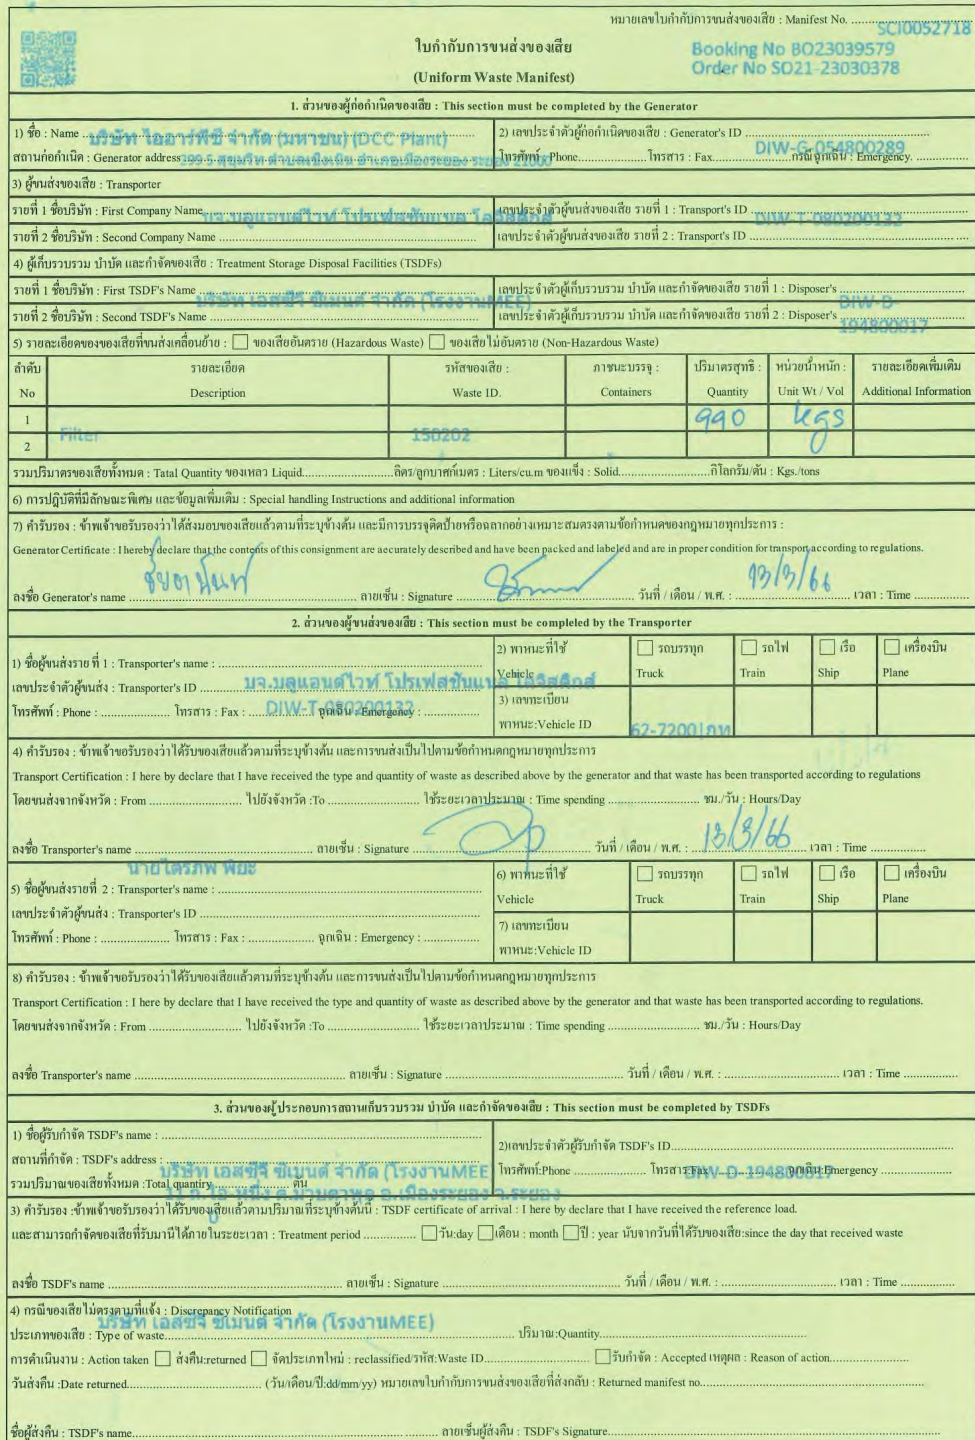 หมายเลขใบกำกับการขนส่งของเสีย : Manifest No. ........................
SCI0052718
ใบกำกับการขนส่งของเสีย
(Uniform Waste Manifest)
Booking No BO23039579
Order No SO21-23030378
1. ส่วนของผู้ก่อกำเนิดของเสีย : This section must be completed by the Generator
1) ชื่อ : Name บริษัท ไออาร์พีซี จำกัด (มหาชน) (DCC Plant)
2) เลขประจำตัวผู้ก่อกำเนิดของเสีย : Generator's ID DIW-G-054800289
สถานก่อกำเนิด : Generator address 299 5 สุขุมวิท ตำบลเชิงเนิน อำเภอเมืองระยอง ระยอง 21000
โทรศัพท์ : Phone.................โทรสาร : Fax.................กรณีฉุกเฉิน : Emergency. ..............
3) ผู้ขนส่งของเสีย : Transporter
รายที่ 1 ชื่อบริษัท : First Company Name บจ.บลูแอนด์ไวท์ โปรเฟสชั่นแนล โลจิสติกส์
เลขประจำตัวผู้ขนส่งของเสีย รายที่ 1 : Transport's ID DIW-T-080200132
รายที่ 2 ชื่อบริษัท : Second Company Name ........................
เลขประจำตัวผู้ขนส่งของเสีย รายที่ 2 : Transport's ID ........................
4) ผู้เก็บรวบรวม บำบัด และกำจัดของเสีย : Treatment Storage Disposal Facilities (TSDFs)
รายที่ 1 ชื่อบริษัท : First TSDF's Name บริษัท เอสซีจี ซิเมนต์ จำกัด (โรงงานMEE)
เลขประจำตัวผู้เก็บรวบรวม บำบัด และกำจัดของเสีย รายที่ 1 : Disposer's DIW-D-194800017
รายที่ 2 ชื่อบริษัท : Second TSDF's Name ........................
เลขประจำตัวผู้เก็บรวบรวม บำบัด และกำจัดของเสีย รายที่ 2 : Disposer's
5) รายละเอียดของของเสียที่ขนส่งเคลื่อนย้าย : ☐ ของเสียอันตราย (Hazardous Waste) ☐ ของเสียไม่อันตราย (Non-Hazardous Waste)
ลำดับ รายละเอียด รหัสของเสีย : ภาชนะบรรจุ : ปริมาตรสุทธิ : หน่วยน้ำหนัก : รายละเอียดเพิ่มเติม
No Description Waste ID. Containers Quantity Unit Wt / Vol Additional Information
1 Filter 150202 990 kgs
2
รวมปริมาตรของเสียทั้งหมด : Tatal Quantity ของเหลว Liquid........................ลิตร/ลูกบาศก์เมตร : Liters/cu.m ของแข็ง : Solid........................กิโลกรัม/ตัน : Kgs./tons
6) การปฏิบัติที่มีลักษณะพิเศษ และข้อมูลเพิ่มเติม : Special handling Instructions and additional information
7) คำรับรอง : ข้าพเจ้าขอรับรองว่าได้ส่งมอบของเสียแล้วตามที่ระบุข้างต้น และมีการบรรจุติดป้ายหรือฉลากอย่างเหมาะสมตรงตามข้อกำหนดของกฎหมายทุกประการ :
Generator Certificate : I hereby declare that the contents of this consignment are aecurately described and have been packed and labeled and are in proper condition for transport according to regulations.
ลงชื่อ Generator's name ........................ ลายเซ็น : Signature ........................ วันที่ / เดือน / พ.ศ. : 13/3/66 เวลา : Time ..................
2. ส่วนของผู้ขนส่งของเสีย : This section must be compleled by the Transporter
1) ชื่อผู้ขนส่งราย ที่ 1 : Transporter's name : ........................
2) พาหนะที่ใช้ ☐ รถบรรทุก ☐ รถไฟ ☐ เรือ ☐ เครื่องบิน
Vehicle Truck Train Ship Plane
เลขประจำตัวผู้ขนส่ง : Transporter's ID บจ.บลูแอนด์ไวท์ โปรเฟสชั่นแนล โลจิสติกส์
โทรศัพท์ : Phone : ............... โทรสาร : Fax : DIW-T-080200132 ฉุกเฉิน : Emergency : ...............
3) เลขทะเบียน
พาหนะ:Vehicle ID 62-7200|กท
4) คำรับรอง : ข้าพเจ้าขอรับรองว่าได้รับของเสียแล้วตามที่ระบุข้างต้น และการขนส่งเป็นไปตามข้อกำหนดกฎหมายทุกประการ
Transport Certification : I here by declare that I have received the type and quantity of waste as described above by the generator and that waste has been transported according to regulations
โดยขนส่งจากจังหวัด : From ........................ ไปยังจังหวัด :To ........................ ใช้ระยะเวลาประมาณ : Time spending ........................ ชม./วัน : Hours/Day
ลงชื่อ Transporter's name ........................ ลายเซ็น : Signature ........................ วันที่ / เดือน / พ.ศ. : 13/3/66 เวลา : Time .................
นายไตรภพ พิยะ
5) ชื่อผู้ขนส่งรายที่ 2 : Transporter's name : ........................
6) พาหนะที่ใช้ ☐ รถบรรทุก ☐ รถไฟ ☐ เรือ ☐ เครื่องบิน
Vehicle Truck Train Ship Plane
เลขประจำตัวผู้ขนส่ง : Transporter's ID ........................
โทรศัพท์ : Phone : ............... โทรสาร : Fax : ............... ฉุกเฉิน : Emergency : ...............
7) เลขทะเบียน
พาหนะ:Vehicle ID
8) คำรับรอง : ข้าพเจ้าขอรับรองว่าได้รับของเสียแล้วตามที่ระบุข้างต้น และการขนส่งเป็นไปตามข้อกำหนดกฎหมายทุกประการ
Transport Certification : I here by declare that I have received the type and quantity of waste as described above by the generator and that waste has been transported according to regulations.
โดยขนส่งจากจังหวัด : From ........................ ไปยังจังหวัด :To ........................ ใช้ระยะเวลาประมาณ : Time spending ........................ ชม./วัน : Hours/Day
ลงชื่อ Transporter's name ........................ ลายเซ็น : Signature ........................ วันที่ / เดือน / พ.ศ. : ........................ เวลา : Time .................
3. ส่วนของผู้ประกอบการสถานเก็บรวบรวม บำบัด และกำจัดของเสีย : This section must be completed by TSDFs
1) ชื่อผู้รับกำจัด TSDF's name : ........................
2)เลขประจำตัวผู้รับกำจัด TSDF's ID........................
สถานที่กำจัด : TSDF's address : บริษัท เอสซีจี ซิเมนต์ จำกัด (โรงงานMEE
โทรศัพท์:Phone ............... โทรสาร:Fax DIW-D-194800017 ฉุกเฉิน:Emergency ...............
รวมปริมาณของเสียทั้งหมด :Total quantiry ............... ตัน
11 ถ.ไอ-หนึ่ง ต.มาบตาพุด อ.เมืองระยอง จ.ระยอง
0
3) คำรับรอง :ข้าพเจ้าขอรับรองว่าได้รับของเสียแล้วตามปริมาณที่ระบุข้างต้นนี้ : TSDF certificate of arrival : I here by declare that I have received the reference load.
และสามารถกำจัดของเสียที่รับมานี้ได้ภายในระยะเวลา : Treatment period ............... ☐วัน:day ☐เดือน : month ☐ปี : year นับจากวันที่ได้รับของเสีย:since the day that received waste
ลงชื่อ TSDF's name ........................ ลายเซ็น : Signature ........................ วันที่ / เดือน / พ.ศ. : ........................ เวลา : Time .................
4) กรณีของเสียไม่ตรงตามที่แจ้ง : Discrepancy Notification
บริษัท เอสซีจี ซิเมนต์ จำกัด (โรงงานMEE)
ประเภทของเสีย : Type of waste........................ ปริมาณ:Quantity........................
การดำเนินงาน : Action taken ☐ ส่งคืน:returned ☐ จัดประเภทใหม่ : reclassified/รหัส:Waste ID........................ ☐รับกำจัด : Accepted เหตุผล : Reason of action........................
วันส่งคืน :Date returned........................ (วัน/เดือน/ปี:dd/mm/yy) หมายเลขใบกำกับการขนส่งของเสียที่ส่งกลับ : Returned manifest no........................
ชื่อผู้ส่งคืน : TSDF's name........................ ลายเซ็นผู้ส่งคืน : TSDF's Signature........................